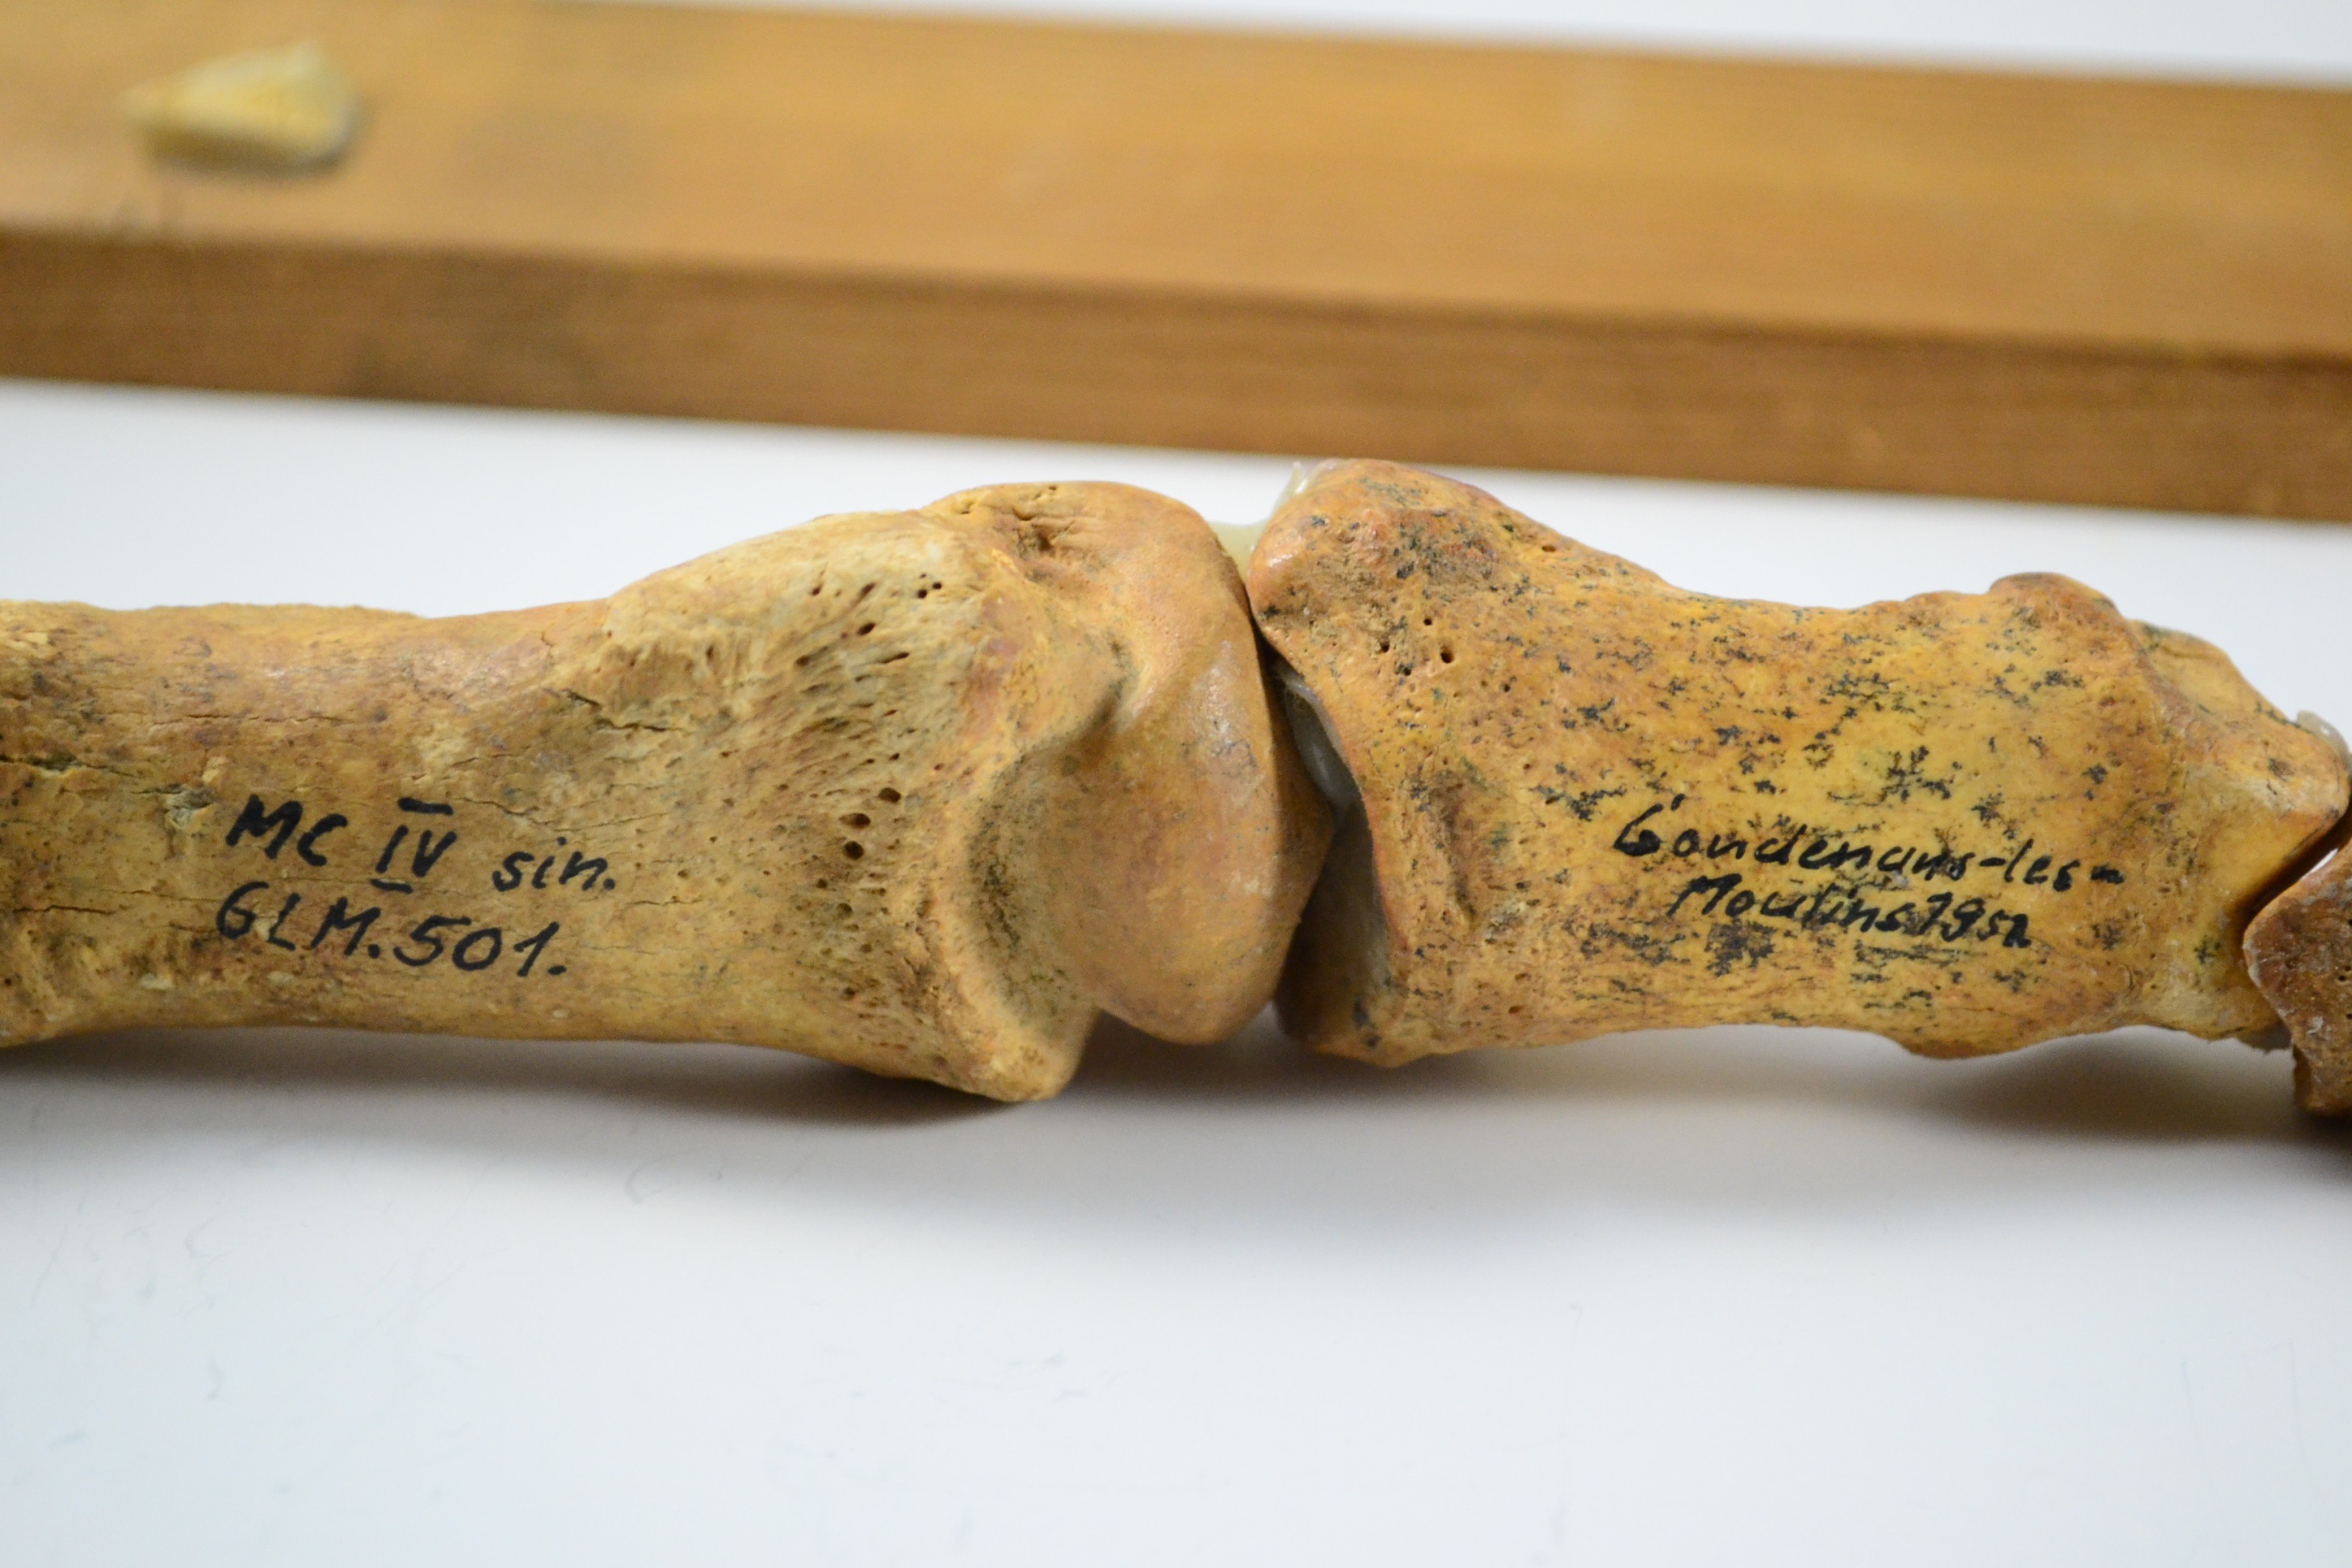 MC IV sin.
GLM.501.
Gondenans-les-
Moulins 1952